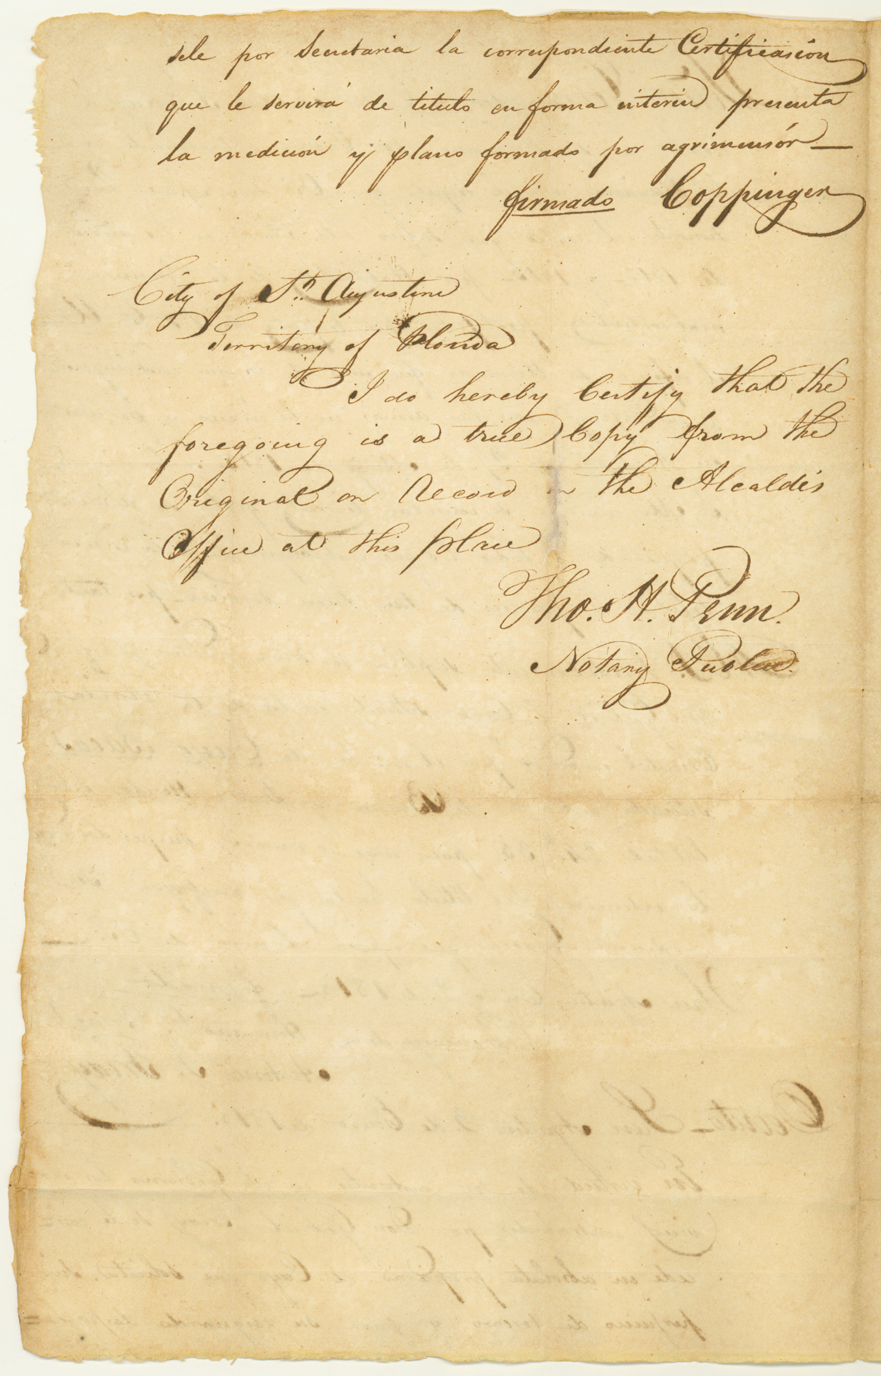 sele por Secretaria la correspondiente Certificasion
que le servirá de titulo en forma interin presenta
la medición y plano formado por agrimensór —
firmado Coppinger
City of St. Augustine
Territory of Florida
I do hereby Certify that the
foregoing is a true Copy from the
Original on Record in the Alcaldes
Office at this place
Tho. H. Penn.
Notary Public.